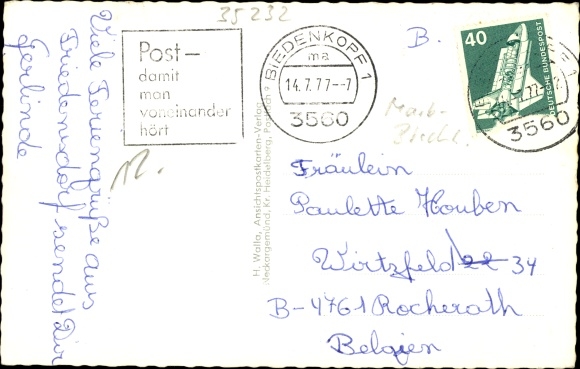 35232
Post-
damit
man
voneinander
hört
BIEDENKOPF 1
ma
14.7.77--7
3560
B.
40
DEUTSCHE BUNDESPOST
3560
Viele Feriengrüße aus
Friedensdorf sendet Dir
Gerlinde
H. Walla, Ansichtspostkarten-Verlag
Neckargemünd, Kr. Heidelberg,
Fräulein
Paulette Houben
Wirtzfeld 34
B-4761 Rocherath
Belgien